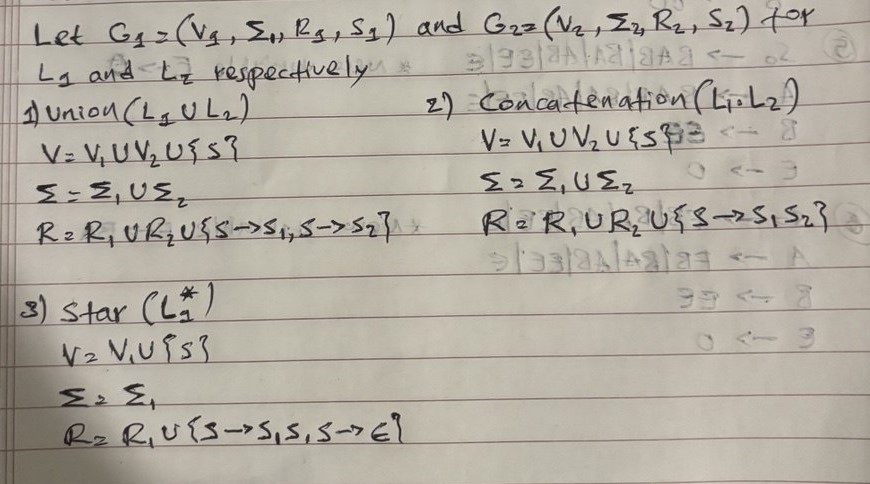 Let G1=(V1, Σ1, R1, S1) and G2=(V2, Σ2, R2, S2) for
L1 and L2 respectively
1) Union (L1 ∪ L2)
V = V1 ∪ V2 ∪ {S}
Σ = Σ1 ∪ Σ2
R = R1 ∪ R2 ∪ {S → S1, S → S2}
2) Concatenation (L1.L2)
V = V1 ∪ V2 ∪ {S}
Σ = Σ1 ∪ Σ2
R = R1 ∪ R2 ∪ {S → S1 S2}
3) Star (L1*)
V = V1 ∪ {S}
Σ = Σ1
R = R1 ∪ {S → S1 S, S → ε}